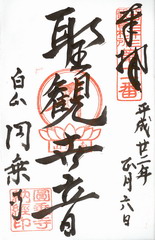 奉拝
平成廿二年
正月六日
聖観世音
白山
円乗寺